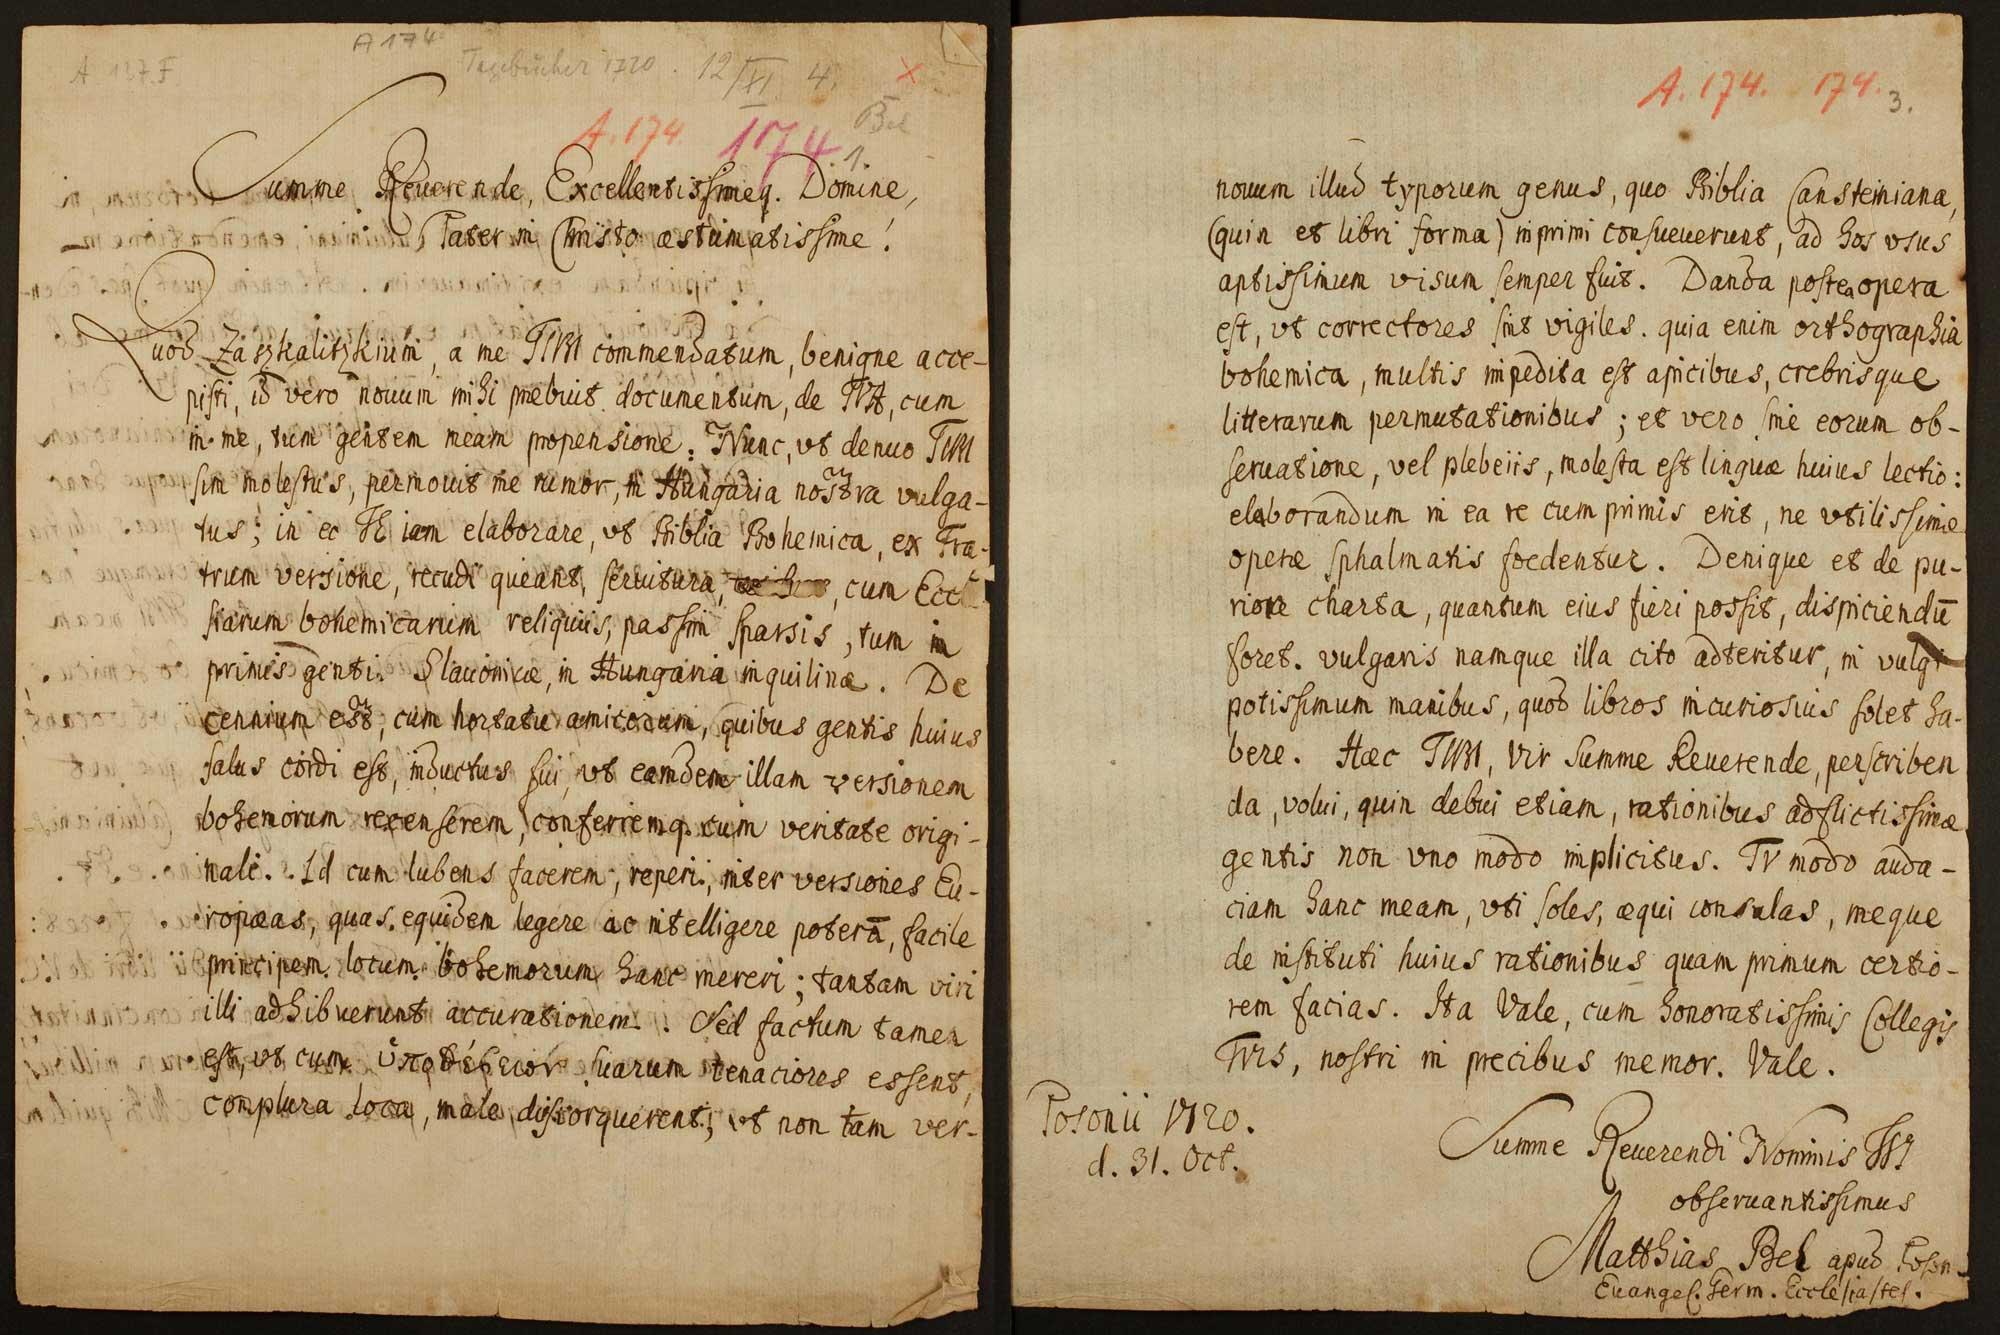 A 127.F
A 174
Tagebücher 1720. 12/XI 4.
x
A. 174. 174
Bel
1.
Summe Reuerende, Excellentissimeq. Domine,
Pater in Christo æstumatissime!
Quod Zaszkalitzkium, a me TIBI commendatum, benigne acce-
pisti, id vero nouum mihi præbuit documentum, de TVA, cum
in me, tum gentem meam propensione. Nunc, vt denuo TIBI
sim molestus, permouit me rumor, in Hungaria nostra vulga-
tus; in eo TE iam elaborare, vt Biblia Bohemica, ex Fra-
trum versione, recudi queant, seruitura, cum Eccle
siarum bohemicarum reliquiis, passim sparsis, tum in
primis genti Slauonicæ, in Hungaria inquilinæ. De
cennium est, cum hortatu amicorum, quibus gentis huius
salus cordi est, inductus fui, vt eamdem illam versionem
bohemorum recenserem, conferremq. cum veritate origi-
nali. Id cum lubens facerem, reperi, inter versiones Eu-
ropæas, quas equidem legere ac intelligere poterā, facile
principem locum bohemorum hanc mereri; tantam viri
illi adhibuerunt accurationem. Sed factum tamen
est, vt cum ὑποθέσεων suarum tenaciores essent,
complura loca, male distorquerent; vt non tam ver-
A. 174. 174.
3.
nouum illud typorum genus, quo Biblia Cansteiniana,
(quin et libri forma) inprimi consueuerunt, ad hos vsus
aptissimum visum semper fuit. Danda postea opera
est, vt correctores sint vigiles. quia enim orthographia
bohemica, multis impedita est apicibus, crebrisque
litterarum permutationibus; et vero sine eorum ob-
seruatione, vel plebeiis, molesta est linguæ huius lectio:
elaborandum in ea re cum primis erit, ne vtilissimæ
operæ sphalmatis foedentur. Denique et de pu-
riore charta, quantum eius fieri possit, dispiciendū
foret. vulgaris namque illa cito adteritur, in vulgi
potissimum manibus, quod libros incuriosius solet ha-
bere. Hæc TIBI, Vir Summe Reuerende, perscriben
da, volui, quin debui etiam, rationibus adflictissimæ
gentis non vno modo inplicitus. TV modo auda-
ciam hanc meam, vti soles, æqui consulas, meque
de instituti huius rationibus quam primum certio-
rem facias. Ita Vale, cum honoratissimis Collegis
TVIS, nostri in precibus memor. Vale.
Posonii 1720.
d. 31. Oct.
Summe Reuerendi Nominis TVI
obseruantissimus
Matthias Bel apud Poson.
Euangel. Germ. Ecclesiastes.